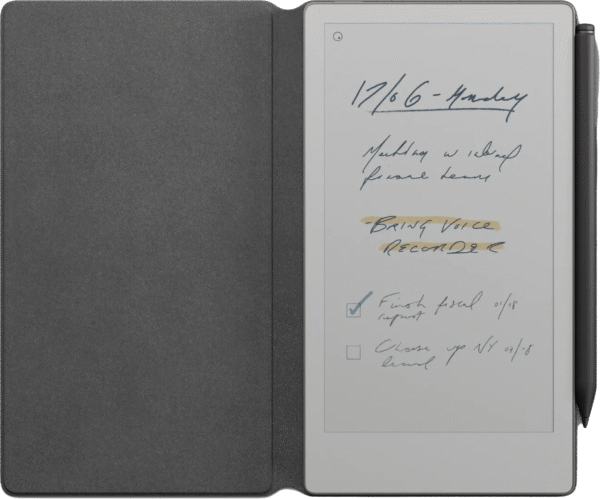 17/06 - Monday
Meeting w
finance team
- BRING VOICE
RECORDER
Finish fiscal 01/18
report
Close up NY